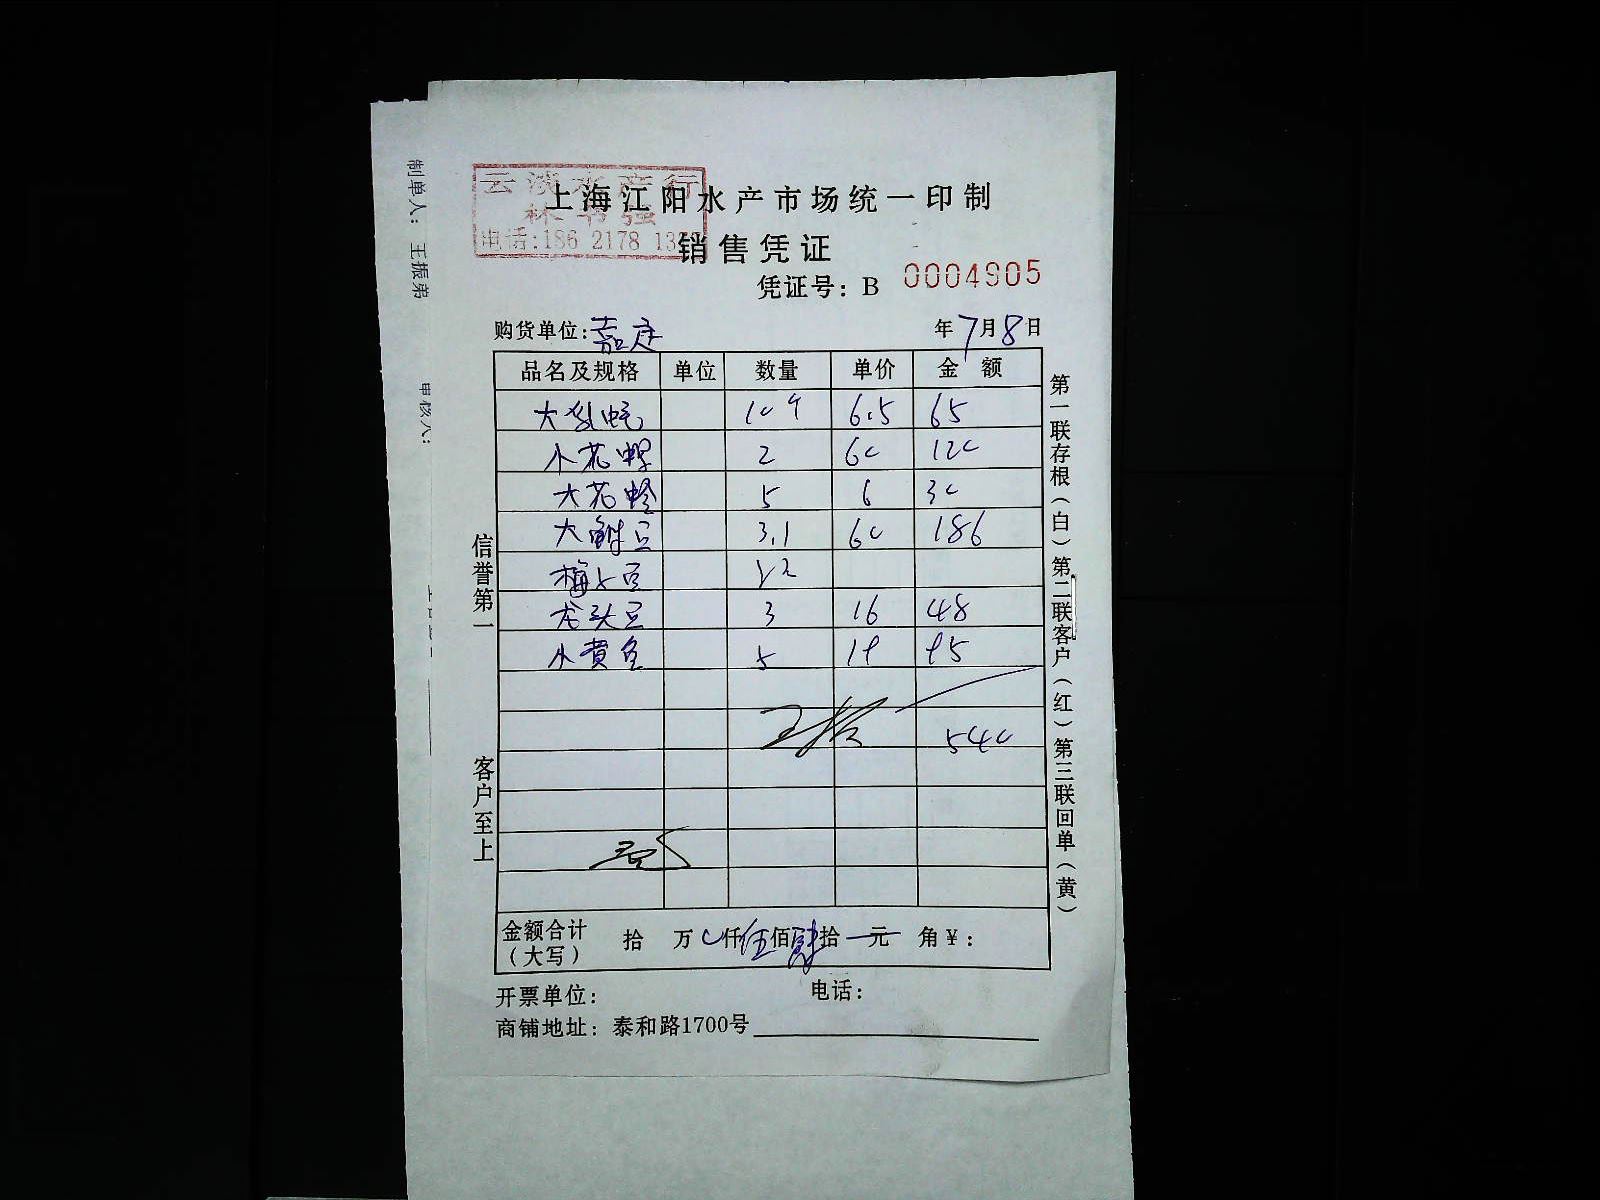 云淡水产行
林书强
电话:186 2178 13
上海江阳水产市场统一印制
销售凭证
凭证号: B 0004905
购货单位: 嘉定 年7月8日
品名及规格 单位 数量 单价 金 额
大 10个 6.5 65
小花 2 60 120
大花蛤 5 6 30
大 豆 3.1 60 186
梅 豆
龙头豆 3 16 48
小黄鱼 5 19 95
540
金额合计 拾 万 仟伍佰肆拾 元 角¥:
(大写)
开票单位: 电话:
商铺地址: 泰和路1700号
信誉第一 客户至上
第一联存根(白)第二联客户(红)第三联回单(黄)
制单人: 王振弟 审核人: